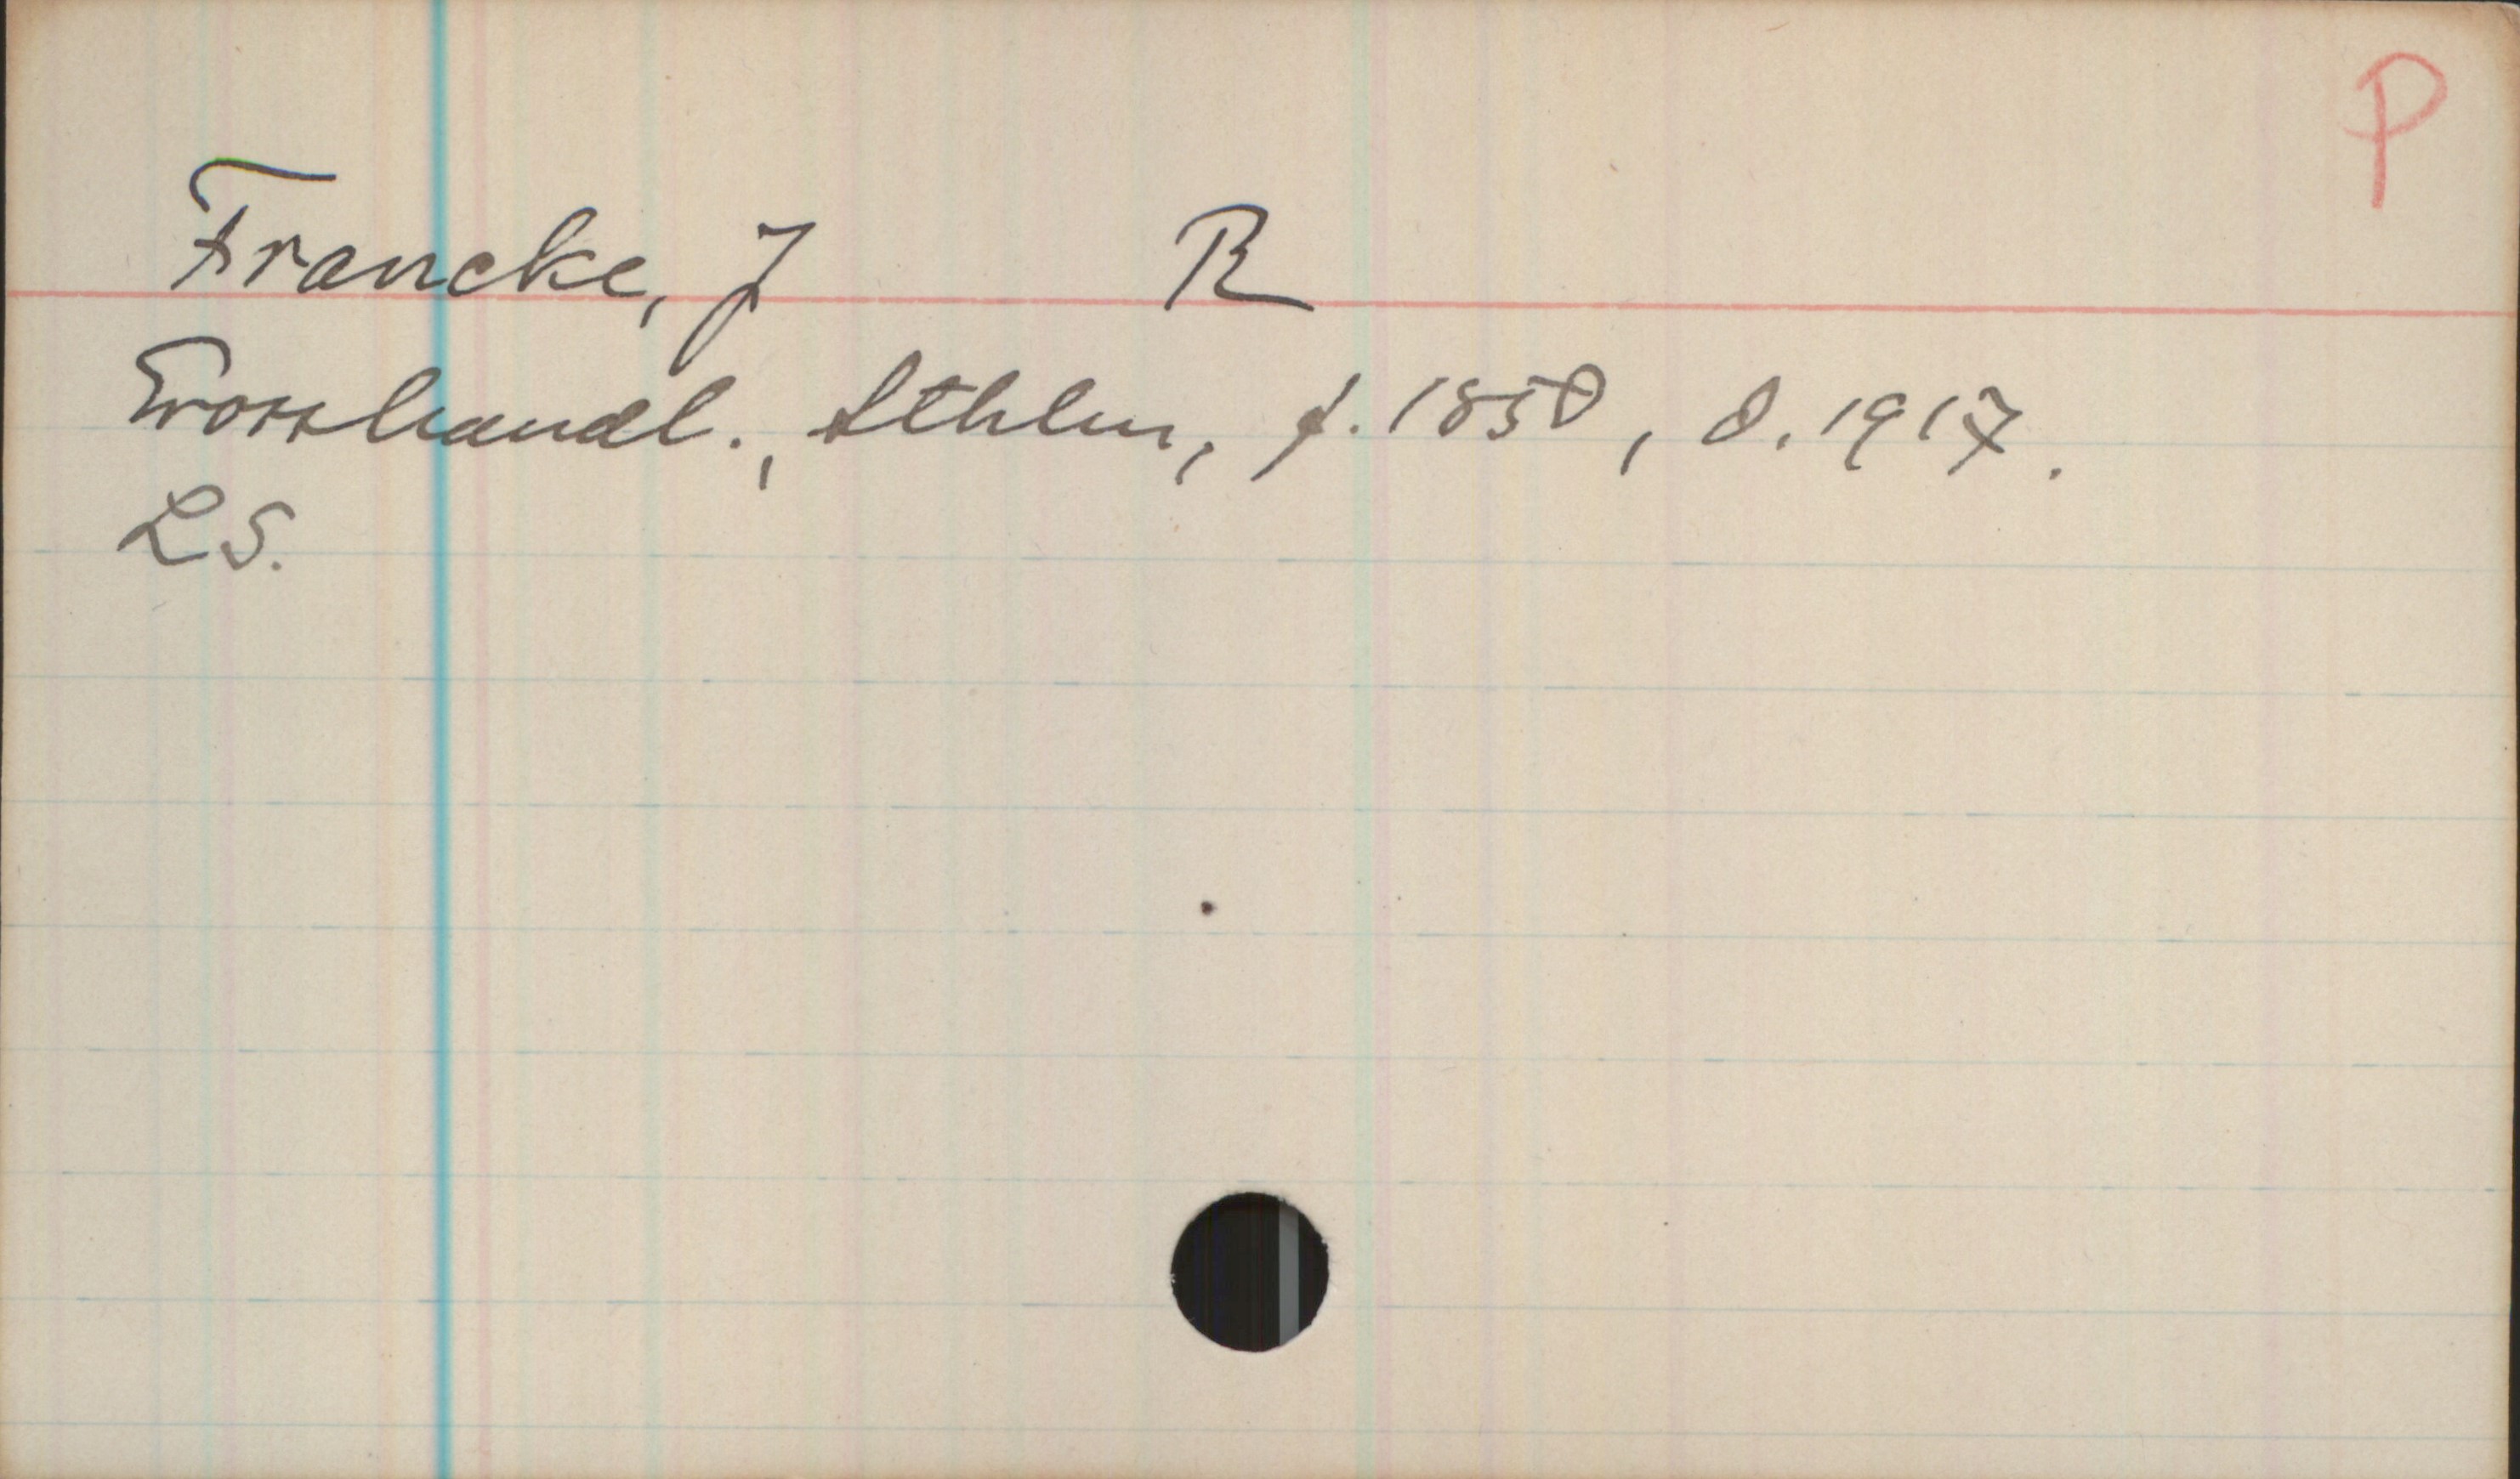 P
Francke, J R
Grosshandl., Sthlm, f. 1850, d. 1917.
LS.